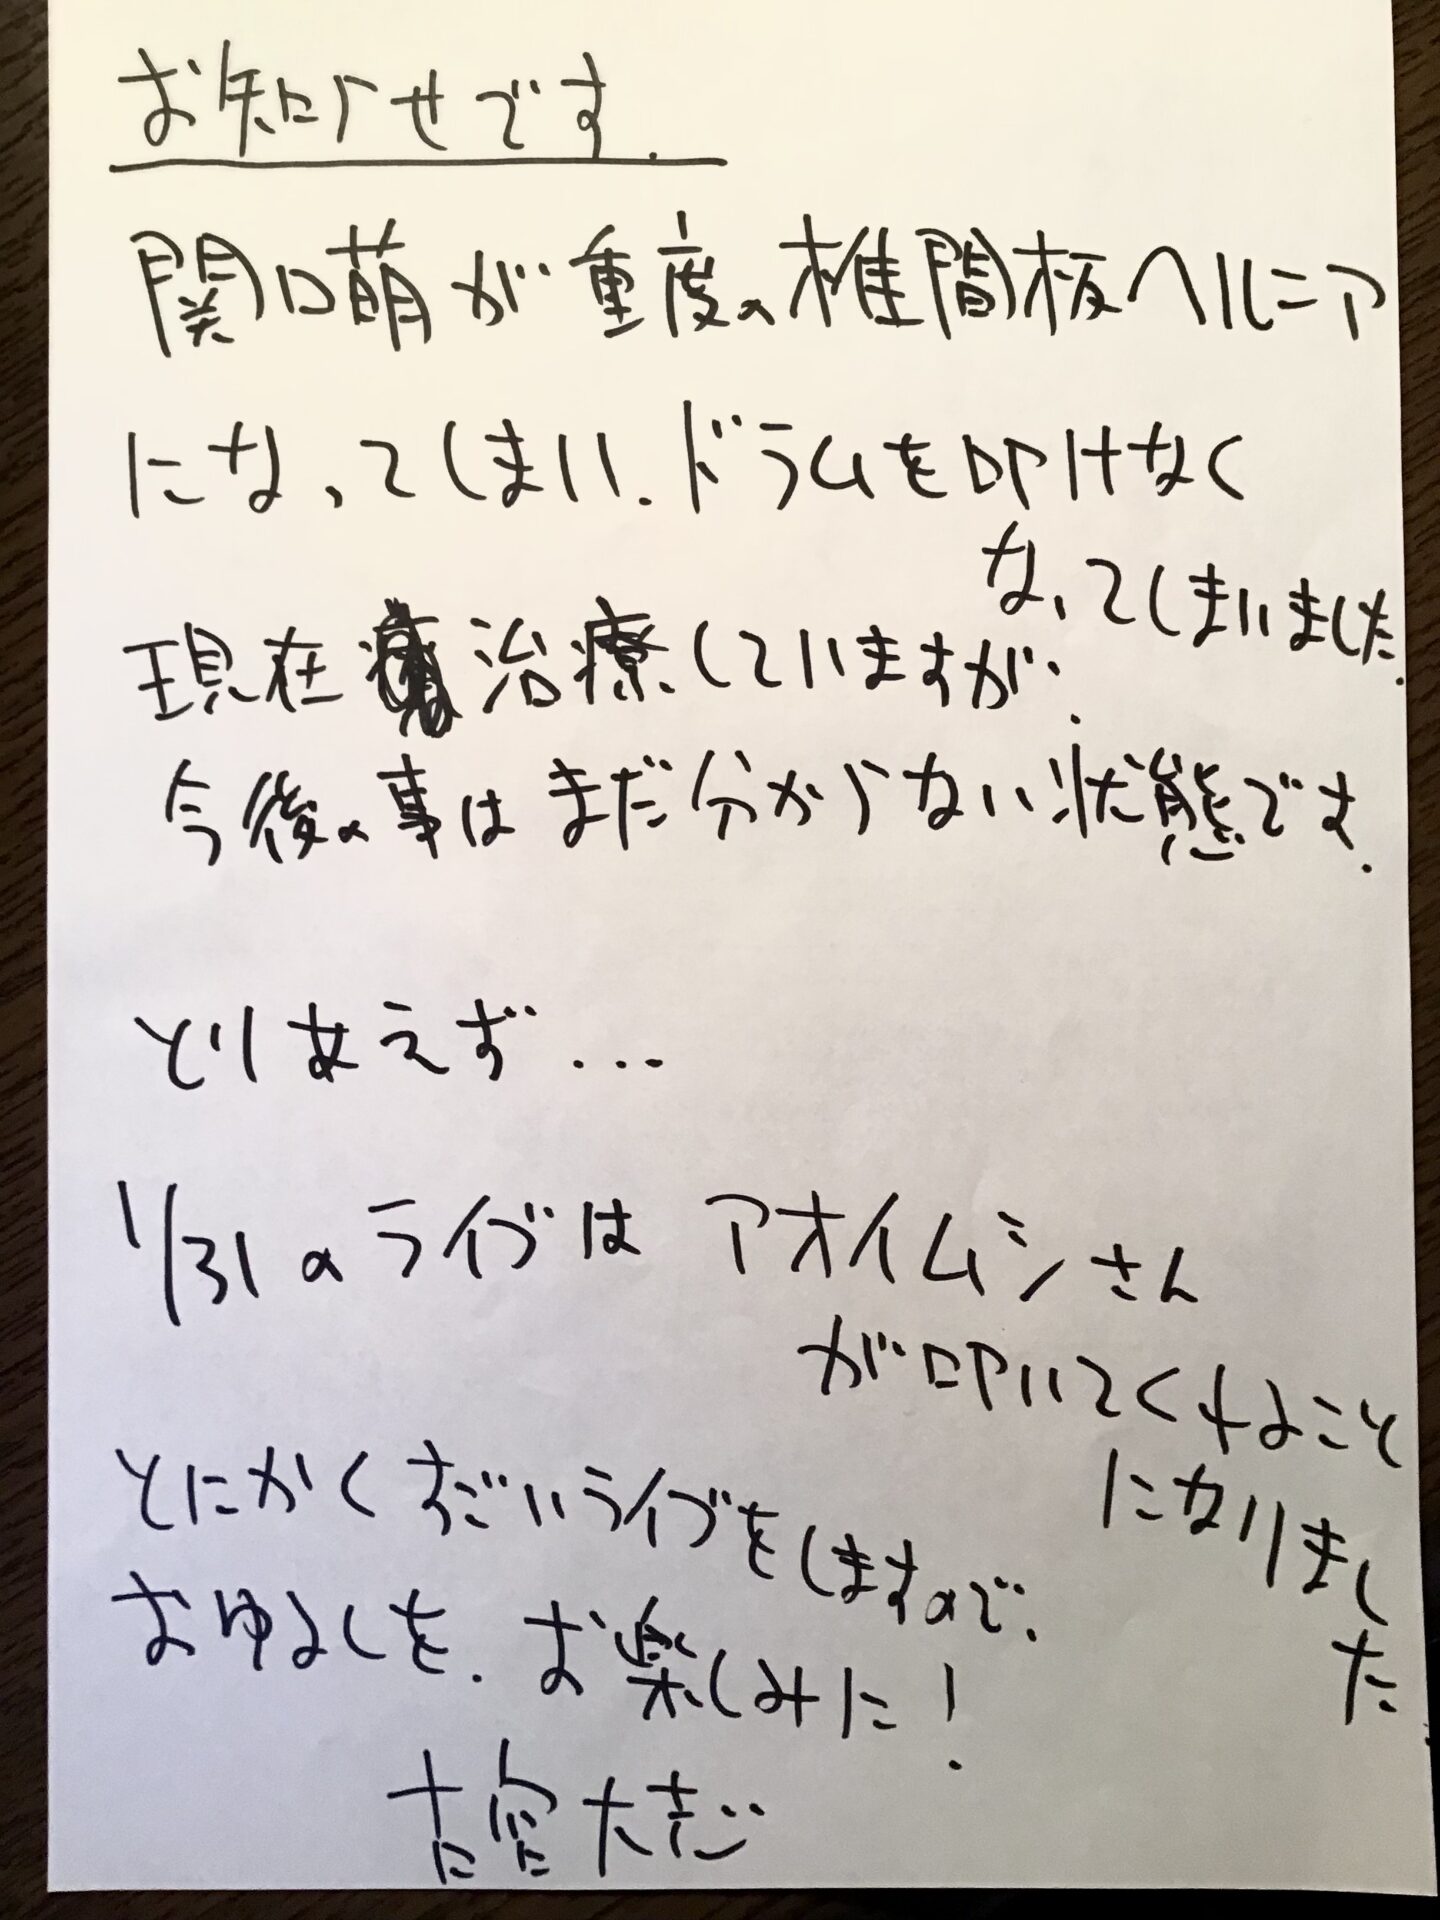 お知らせです.
関口萌が重度の椎間板ヘルニア
になってしまい.ドラムを叩けなく
なってしまいました.
現在治療していますが.
今後の事はまだ分からない状態です.
とりあえず...
1/31のライブはアオイムシさん
が叩いてくれること
になりまし
た
とにかくすごいライブをしますので.
おゆるしを.お楽しみに!
大志